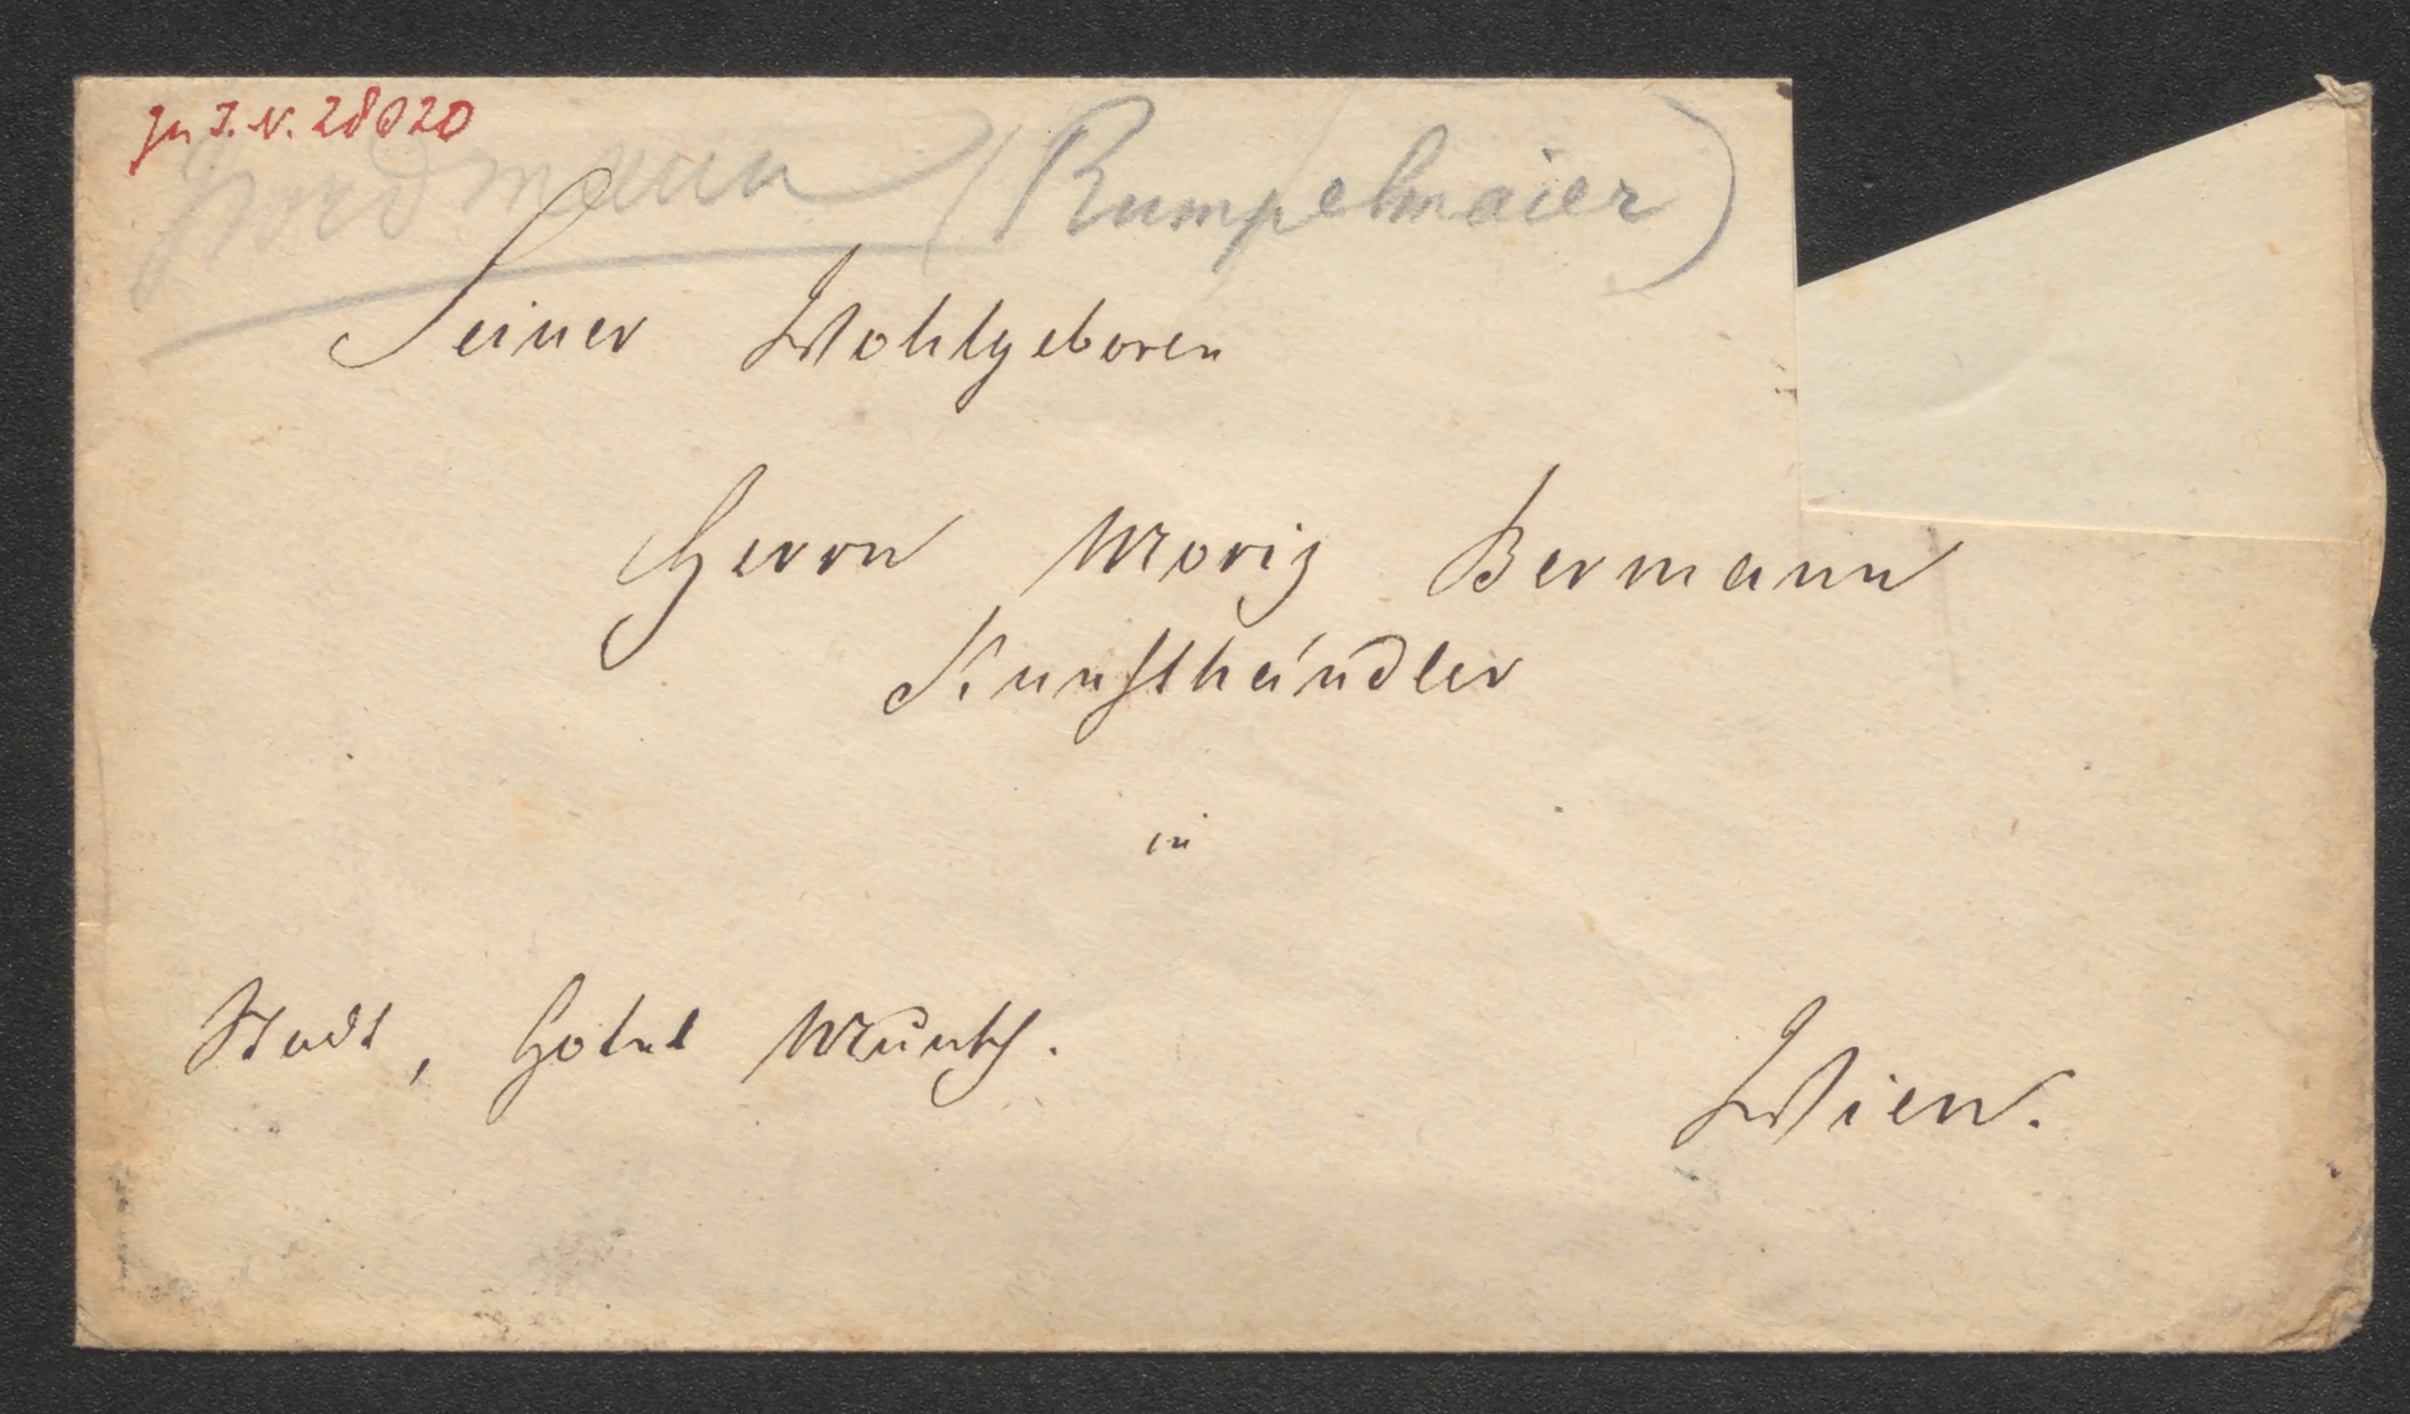 zu I.N. 28020
Nordmann (Rumpelmaier)
Seiner Wohlgeboren
Herrn Moriz Bermann
Kunsthändler
in
Stadt, Hotel Munsch.
Wien.